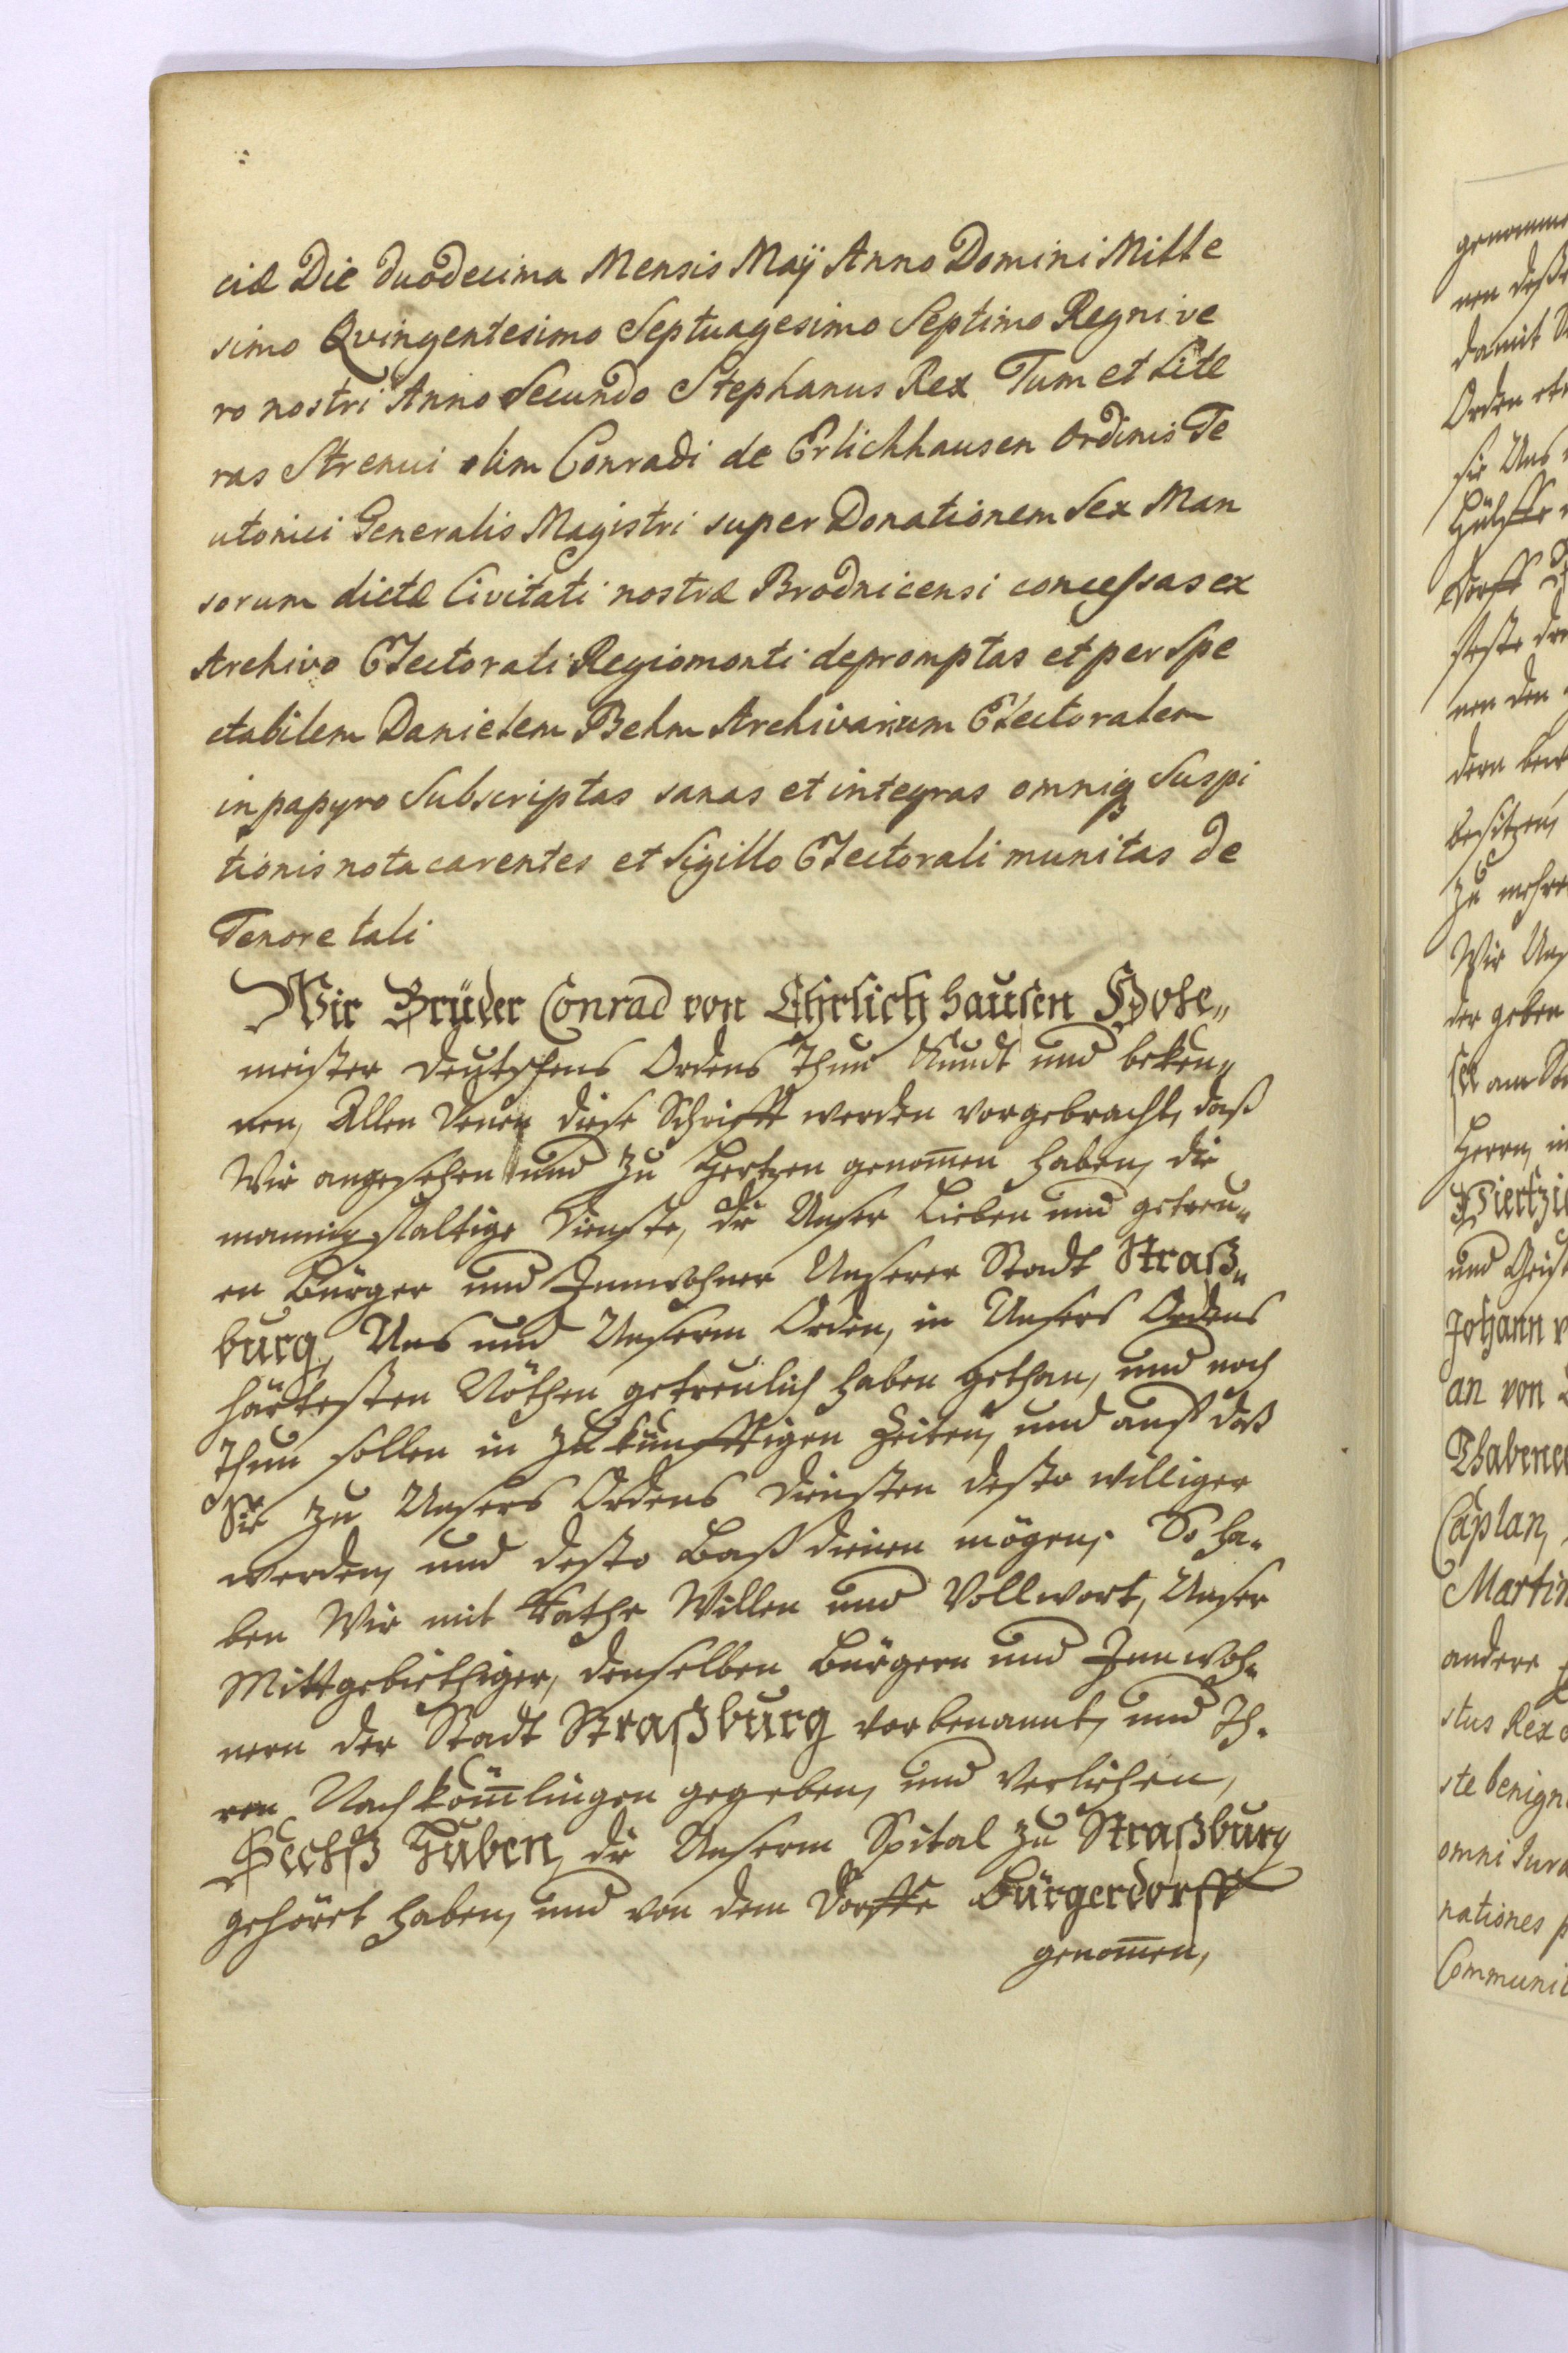 ciæ Die duodecima Mensis Maÿ Anno Domini Mille
simo Qvingentesimo Septuagesimo Septimo Regni ve
ro nostri Anno Secundo Stephanus Rex Tum et Lite
ras Strenui olim Conradi de Erlichhausen Ordinis Te
utonici Generalis Magistri super Donationem Sex Man
sorum dictæ Civitati nostræ Brodnicensi concessas ex
Archivo Electorali Regiomonti depromptas et per Spe
ctabilem Danielem Behm Archivarium Electoralem
in papyro Subscriptas sanas et integras omniq Suspi
tionis nota carentes et Sigillo Electorali munitas de
Tenore tali
Wir Brüder Conrad von Ehrlichhausen Hohe„
meister Deutschens Ordens Thun Kundt und beken„
nen, Allen denen diese Schrifft werden vorgebracht, daß
Wir angesehen und zu Hertzen genom̄en haben, die
mannigfaltige Dienste, die Unser Lieben und getreu„
en Bürger und Innwohner Unserer Stadt Straß„
burg, Uns und Unserm Orden, in Unsers Ordens
härtesten Nöthen getreulich haben gethan, und noch
Thun sollen in zukünfftigen Zeiten, und auf daß
Sie zu Unsers Ordens Diensten desto williger
werden, und desto Baß dienen mögen; So ha„
ben Wir mit Rathe Willen und Vollwort, Unser
Mittgebiethiger, denselben Bürgern und Innwoh„
nern der Stadt Straßburg vorbenannt, und Ih„
ren Nachköm̄lingen gegeben, und verliehen,
Sechß Huben, die Unserm Spital zu Straßburg
gehöret haben, und von dem Dorffe Bürgerdorff
genom̄en,
genomme
damit
Orden
sie Uns
den
besitzen
zu mehre
Wir Uns
der geben
Herrn, in
Viertzi
und Geist
Johann v
an von
Caplan,
Martin
andere
stus Rex
ste benign
omni Jura
nationes p
Communi